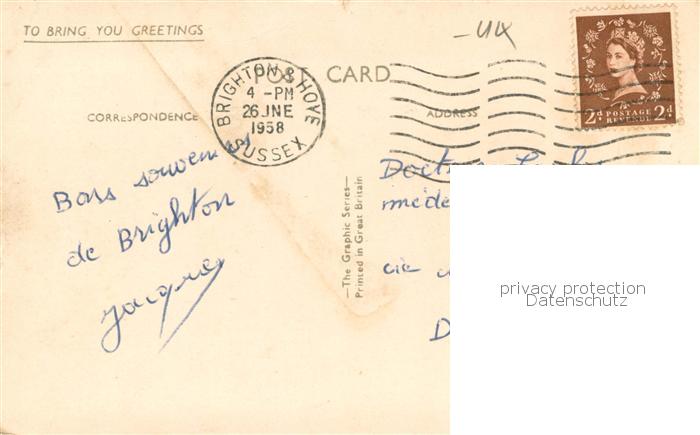 TO BRING YOU GREETINGS
POST CARD
BRIGHTON & HOVE
4 -PM
26 JNE
1958
SUSSEX
2d POSTAGE REVENUE 2d
CORRESPONDENCE
ADDRESS
Bons souvenirs
de Brighton
Jacques
—The Graphic Series—
Printed in Great Britain
privacy protection
Datenschutz